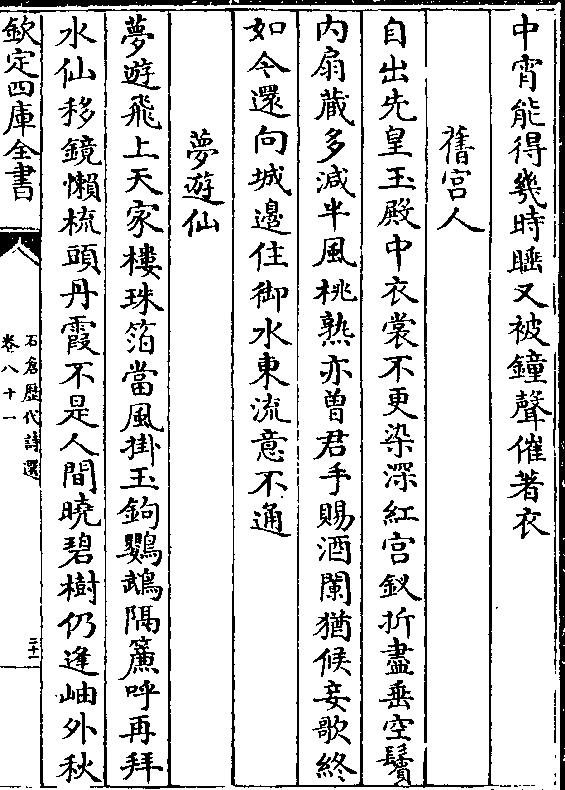 中宵能得幾時睡又被鐘聲催著衣
舊宫人
自出先皇玉殿中衣裳不更染深紅宫釵折盡垂空鬢
内扇蔵多減半風桃熟亦曽君手賜酒闌猶候妾歌終
如今還向城邉住御水東流意不通
夢遊仙
夢遊飛上天家樓珠箔當風掛玉鉤鸚鵡隔簾呼再拜
水仙移鏡懶梳頭丹霞不是人間曉碧樹仍逢岫外秋
欽定四庫全書
石倉歴代詩選
卷八十一